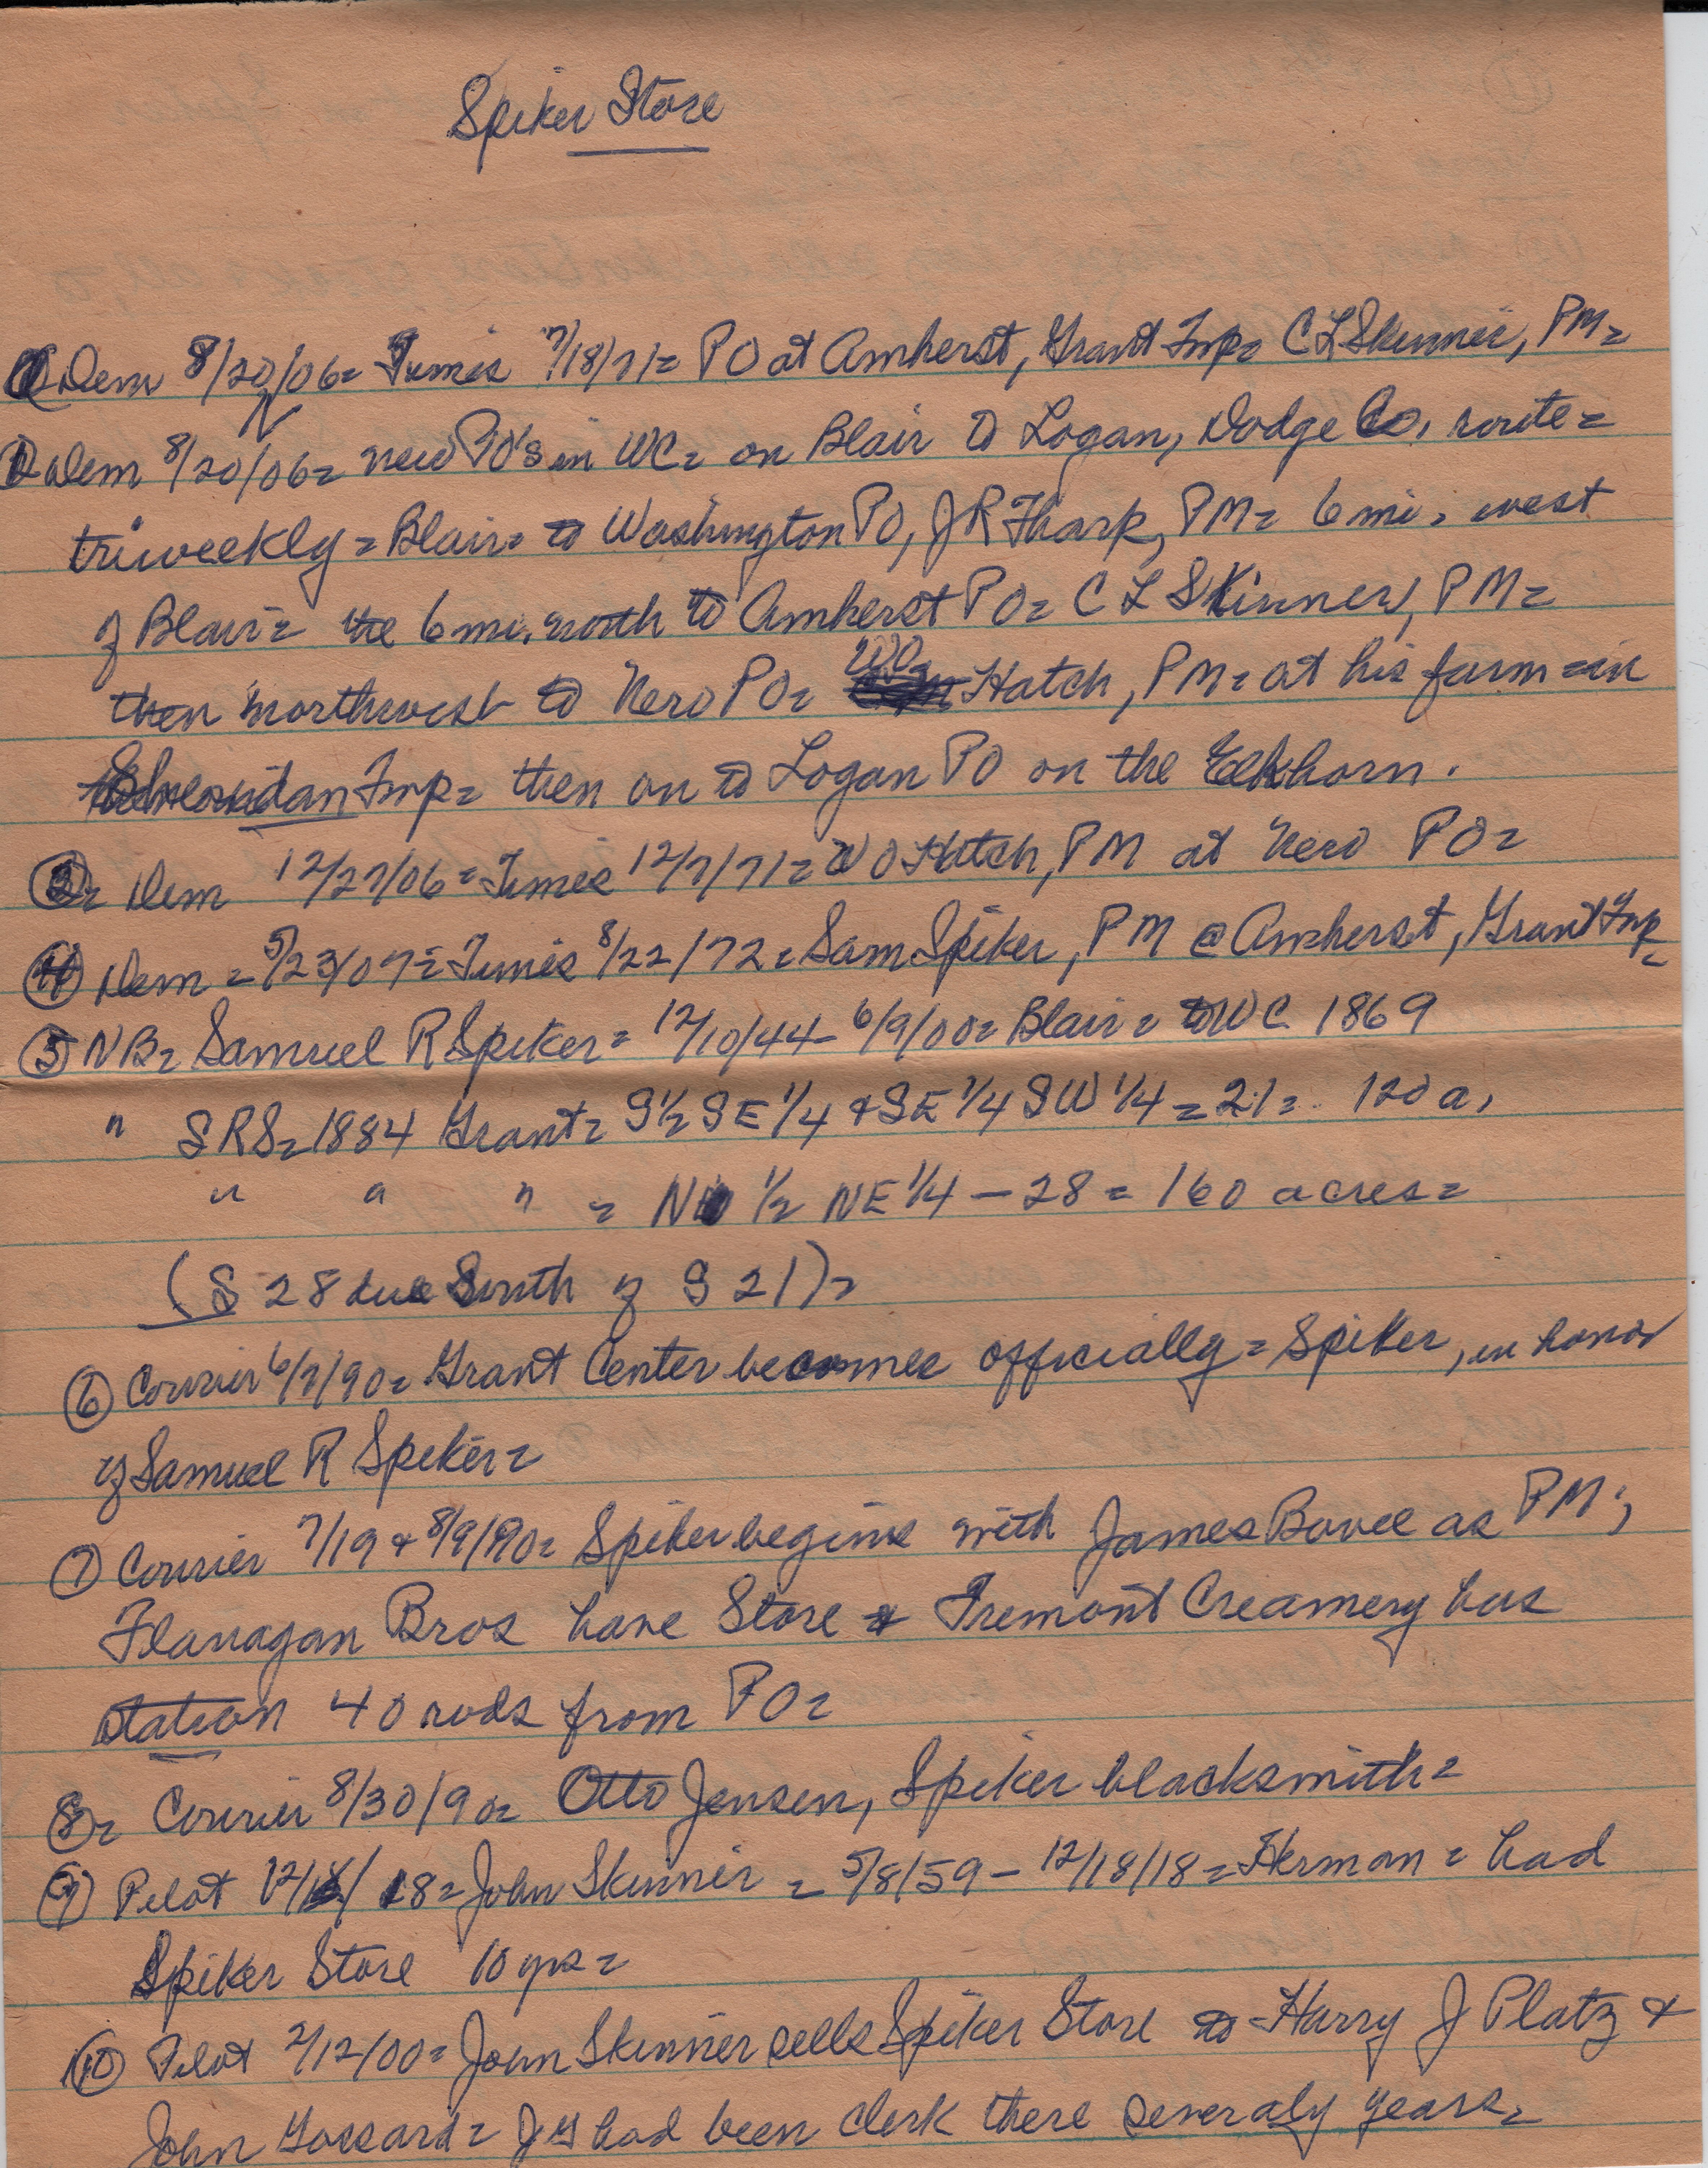 Spiker Store
① Dem 8/20/06 = Times 7/18/71 = PO at Amherst, Grant Twp = C L Skinner, PM =
② Dem 8/20/06 = new PO's in WC = on Blair to Logan, Dodge Co, route =
triweekly = Blair = to Washington PO, J R Thark, PM = 6 mi. west
of Blair = the 6 mi. north to Amherst PO = C L Skinner, PM =
then northwest to Nero PO = WO Hatch, PM = at his farm = in
Sheridan Twp = then on to Logan PO on the Elkhorn.
③ = Dem 12/27/06 = Times 12/7/71 = W O Hatch, PM at Nero PO =
④ Dem = 5/23/07 = Times 8/22/72 = Sam Spiker, PM @ Amherst, Grant Twp =
⑤ NB = Samuel R Spiker = 12/10/44 - 6/9/00 = Blair = to WC 1869
" SRS = 1884 Grant = S 1/2 SE 1/4 & SE 1/4 SW 1/4 = 21 = 120 a,
" " " = N 1/2 NE 1/4 - 28 = 160 acres =
(S 28 due South of S 21) =
⑥ Courier 6/7/90 = Grant Center becomes officially = Spiker, in honor
of Samuel R Spiker =
⑦ Courier 7/19 & 8/9/90 = Spiker begins with James Bovee as PM;
Flanagan Bros have Store & Fremont Creamery has
station 40 rods from PO =
⑧ = Courier 8/30/90 = Otto Jensen, Spiker blacksmith =
⑨ Pilot 12/18/18 = John Skinner = 5/8/59 - 12/18/18 = Herman = had
Spiker Store 10 yrs =
⑩ Pilot 2/12/00 = John Skinner sells Spiker Store to Harry J Platz &
John Gossard = JG had been clerk there severaly years =